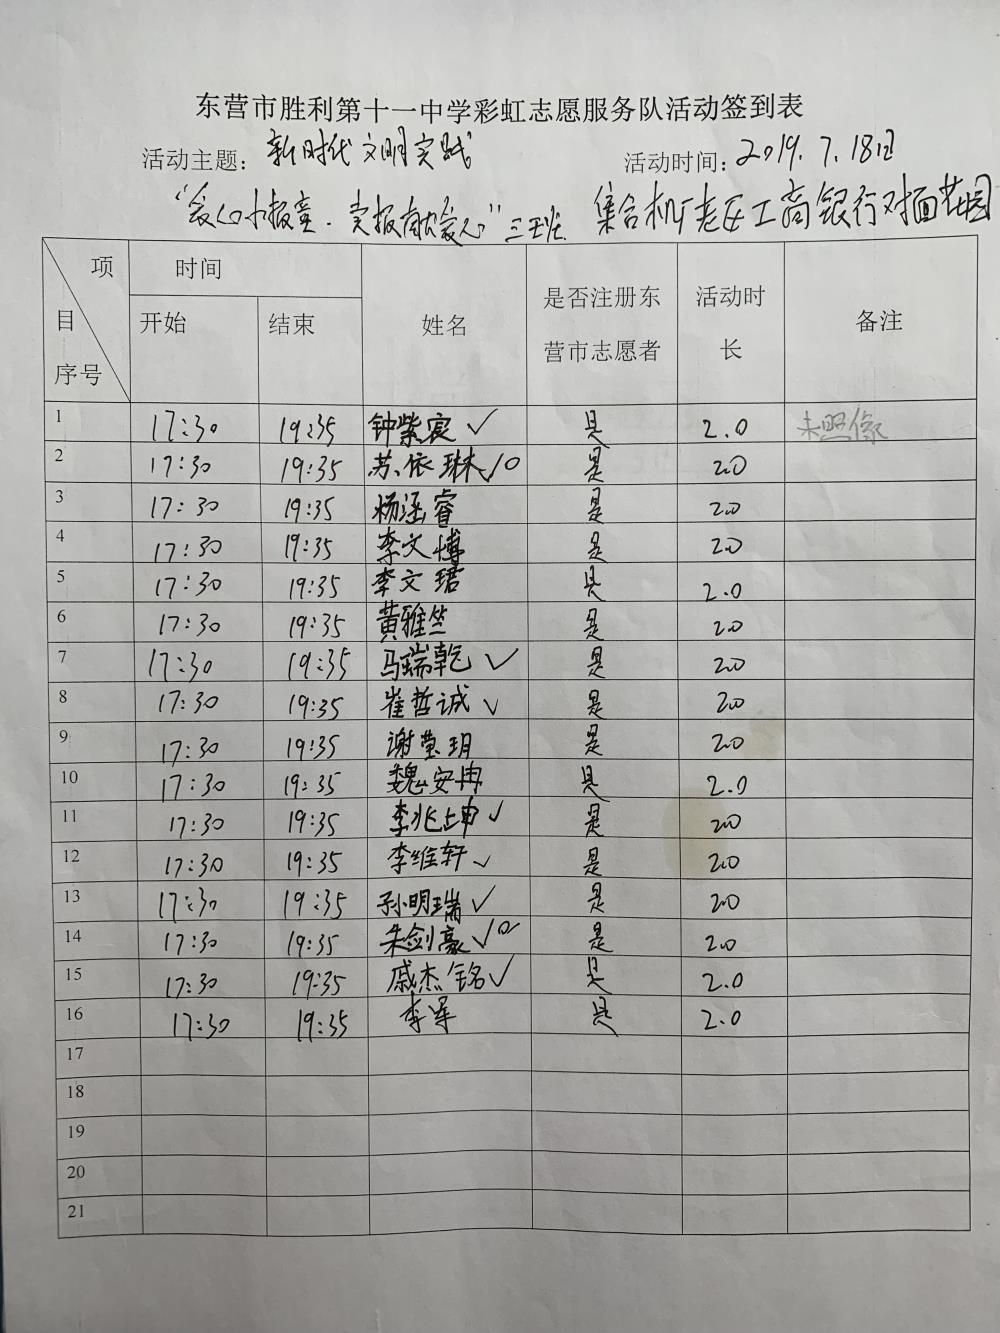 东营市胜利第十一中学彩虹志愿服务队活动签到表
活动主题: 新时代文明实践 活动时间: 2019.7.18日
“爱心小报童·卖报献爱心”三班 集合机厂老区工商银行对面花园
项 时间 姓名 是否注册东 活动时 备注
目 开始 结束 营市志愿者 长
序号
1 17:30 19:35 钟紫宸 ✓ 是 2.0 未照像
2 17:30 19:35 苏依琳 ✓ 是 2.0
3 17:30 19:35 杨涵睿 是 2.0
4 17:30 19:35 李文博 是 2.0
5 17:30 19:35 李文珺 是 2.0
6 17:30 19:35 黄雅竺 是 2.0
7 17:30 19:35 马瑞乾 ✓ 是 2.0
8 17:30 19:35 崔哲诚 ✓ 是 2.0
9 17:30 19:35 谢莹玥 是 2.0
10 17:30 19:35 魏安冉 是 2.0
11 17:30 19:35 李兆坤 ✓ 是 2.0
12 17:30 19:35 李维轩 ✓ 是 2.0
13 17:30 19:35 孙明瑞 ✓ 是 2.0
14 17:30 19:35 朱剑豪 ✓ 是 2.0
15 17:30 19:35 戚杰铭 ✓ 是 2.0
16 17:30 19:35 李军 是 2.0
17
18
19
20
21